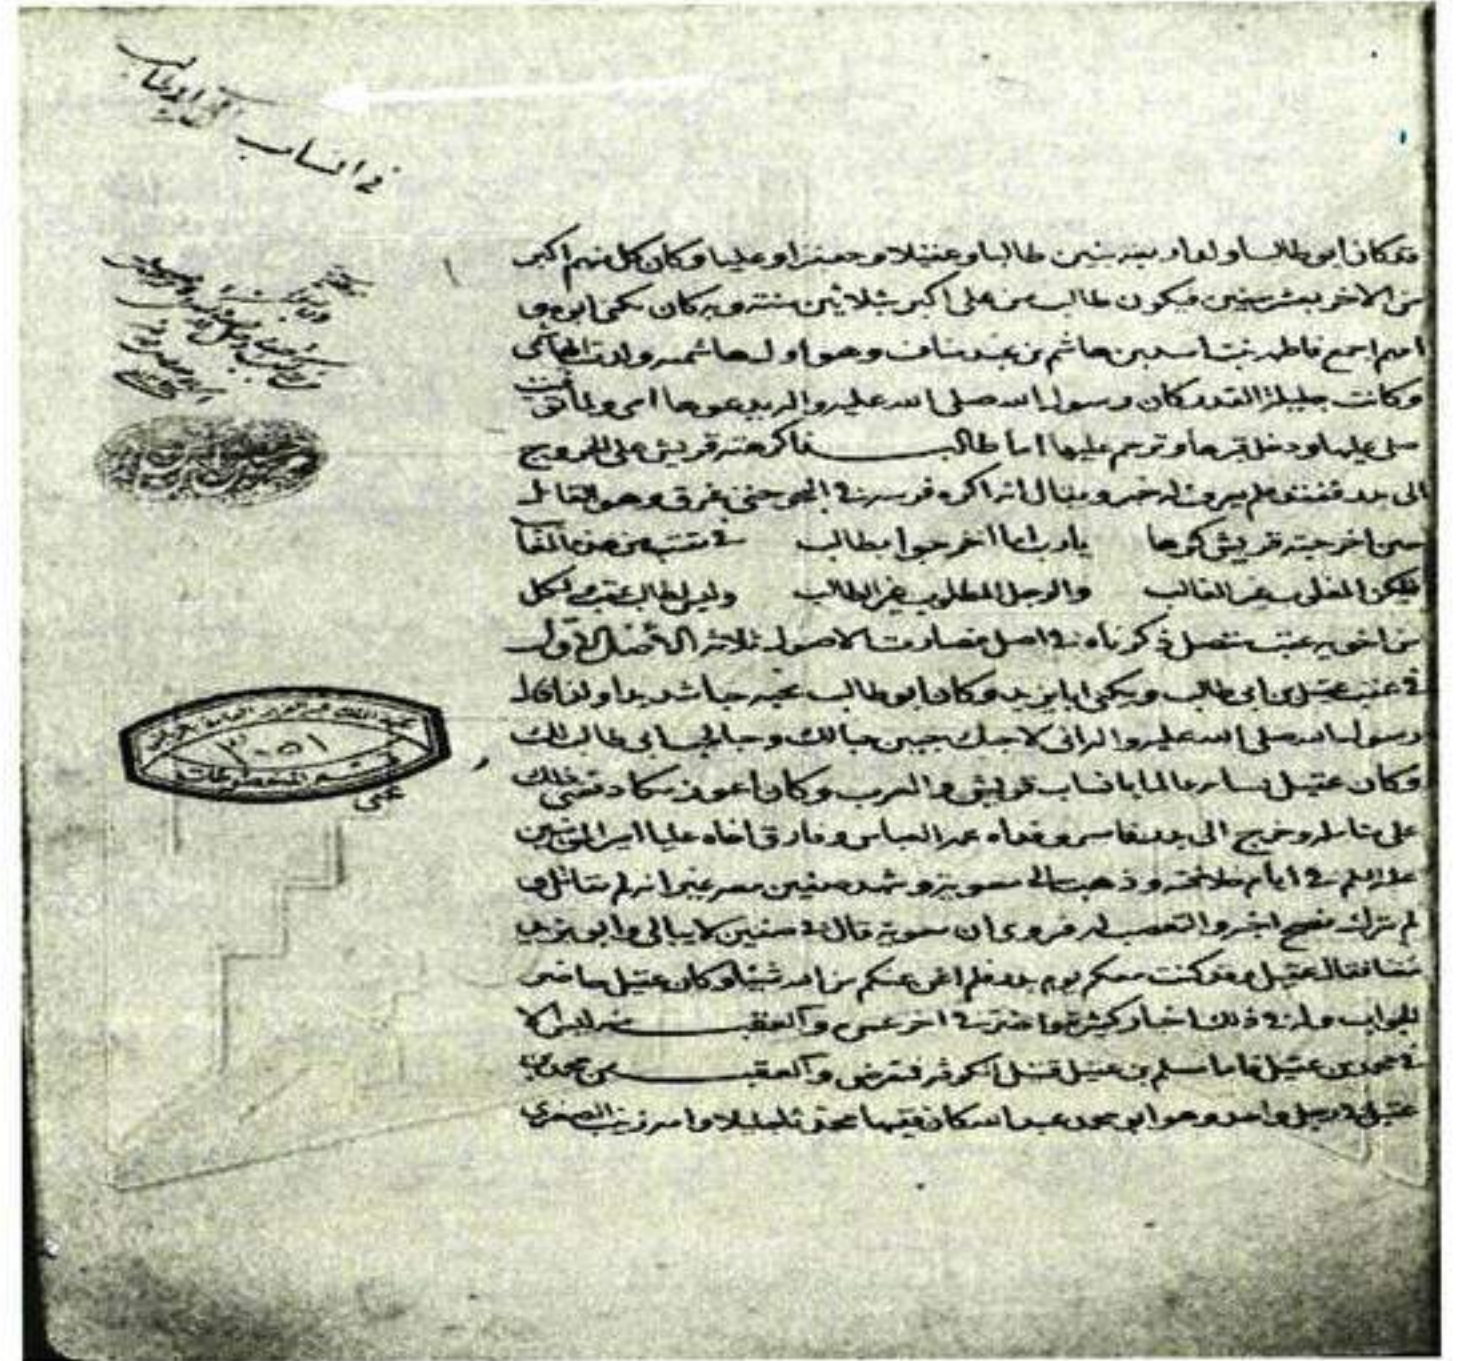 في انساب آل ابي طالب
وقد كان ابو طالب اولد اربعة بنين طالبا وعقيلا وجعفرا وعليا وكان كل منهم اكبر
من الاخر بعشر سنين فيكون طالب من على اكبر بثلاثين سنة وبه كان يكنى ابوه و
امهم اجمع فاطمة بنت اسد بن هاشم بن عبد مناف وهى اول هاشمية ولدت لهاشمى
وكانت جليلة القدر كان رسول الله صلى الله عليه واله يدعوها امى ولما توفيت
صلى عليها ودخل قبرها وترحم عليها اما طالب فاكرهته قريش على الخروج
الى بدر ففقد فلم يعرف له خبر ويقال انه اكره فرسه في البحر حتى غرق وهو القائل
حين اخرجته قريش كرها يا رب اما اخرجوا بطالب في مقنب من هذه المقا
فليكن المغلوب غير الغالب والرجل المطلوب غير الطالب وليس لطالب عقب ولكل
من اخوته عقب متصل ذكرناه في اصل فصارت الاصول ثلاثة الاصل الاول
في عقب عقيل بن ابى طالب ويكنى ابا يزيد وكان ابو طالب يحبه حبا شديدا ولذا قال
رسول الله صلى الله عليه واله انى لاحبك حبين حبا لك وحبا لحب ابى طالب لك
وكان عقيل نسابه عالما بانساب قريش والعرب وكان اعور
وخرج الى بدر فاسر وفداه عمه العباس وفارق اخاه عليا امير المؤمنين
عليه السلم في ايام خلافته وذهب الى معوية وشهد صفين معه غير انه لم يقاتل و
لم يترك نصح اخيه والتعصب له فروى ان معوية قال في صفين لا نبالى وابو يزيد
معنا فقال عقيل وقد كنت معكم يوم بدر فلم اغن عنكم من الله شيئا وكان عقيل حاضر
الجواب وله في ذلك اخبار كثيرة واضر في اخر عمره والعقب منه ليس الا
في محمد بن عقيل فاما مسلم بن عقيل والعقب من محمد بن
عقيل في رجل واحد وهو ابو محمد عبد الله كان فقيها محدثا جليلا وامه زينب الصغرى
مكتبة الملك عبد العزيز العامة
٣٠٥١
قسم المخطوطات